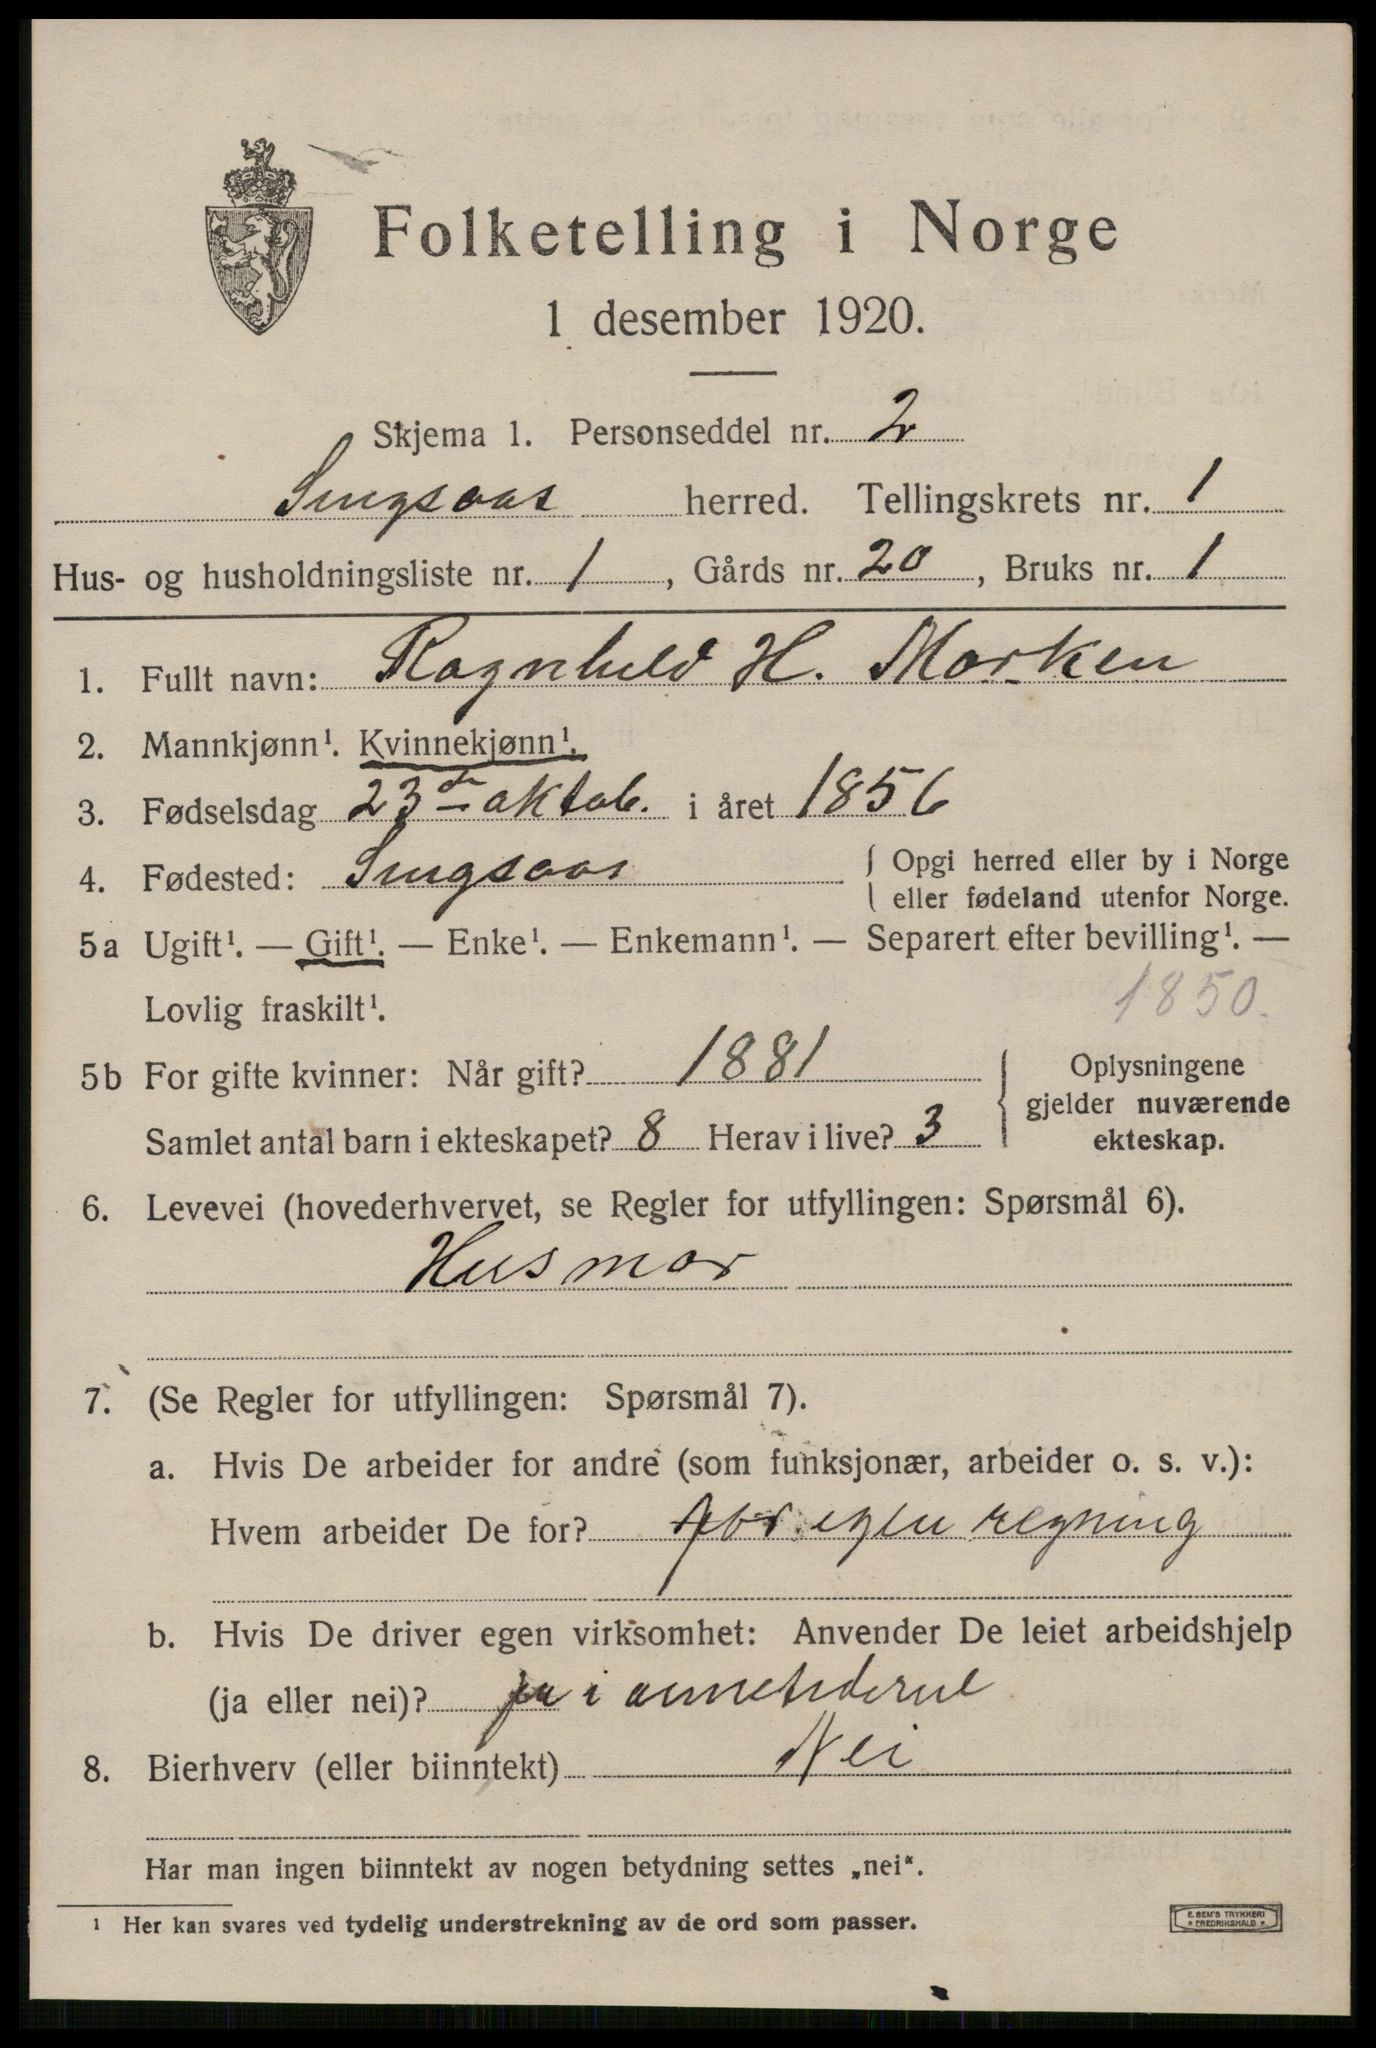 Folketelling i Norge
1 desember 1920.
Skjema 1. Personseddel nr. 2
Singsaas herred. Tellingskrets nr. 1
Hus- og husholdningsliste nr. 1, Gårds nr. 20, Bruks nr. 1
1. Fullt navn: Ragnhild H. Morken
2. Mannkjønn¹. Kvinnekjønn¹.
3. Fødselsdag 23de oktob. i året 1856
4. Fødested: Singsaas { Opgi herred eller by i Norge
eller fødeland utenfor Norge.
5a Ugift¹. — Gift¹. — Enke¹. — Enkemann¹. — Separert efter bevilling¹. —
Lovlig fraskilt¹. 1850.
5b For gifte kvinner: Når gift? 1881
Samlet antal barn i ekteskapet? 8 Herav i live? 3
{ Oplysningene
gjelder nuværende
ekteskap.
6. Levevei (hovederhvervet, se Regler for utfyllingen: Spørsmål 6).
Husmor
7. (Se Regler for utfyllingen: Spørsmål 7).
a. Hvis De arbeider for andre (som funksjonær, arbeider o. s. v.):
Hvem arbeider De for? for egen regning
b. Hvis De driver egen virksomhet: Anvender De leiet arbeidshjelp
(ja eller nei)? ja i onnetiderne
8. Bierhverv (eller biinntekt) Nei
Har man ingen biinntekt av nogen betydning settes „nei".
¹ Her kan svares ved tydelig understrekning av de ord som passer.
E. SEM'S TRYKKERI
* FREDRIKSHALD *